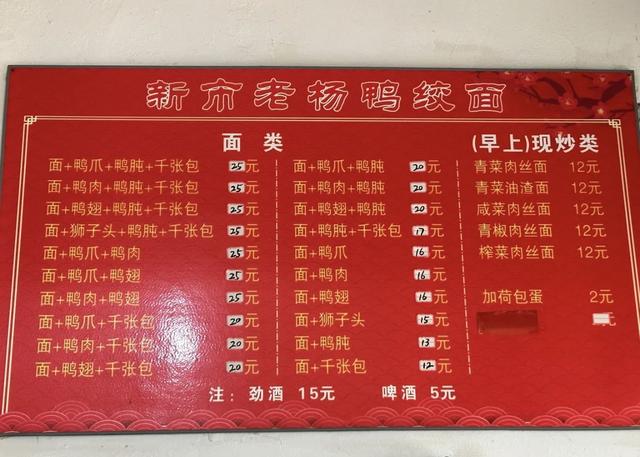 新市老杨鸭绞面
面类
面+鸭爪+鸭肫+千张包 25元
面+鸭肉+鸭肫+千张包 25元
面+鸭翅+鸭肫+千张包 25元
面+狮子头+鸭肫+千张包 25元
面+鸭爪+鸭肉 25元
面+鸭爪+鸭翅 25元
面+鸭肉+鸭翅 25元
面+鸭爪+千张包 20元
面+鸭肉+千张包 20元
面+鸭翅+千张包 20元
面+鸭爪+鸭肫 20元
面+鸭肉+鸭肫 20元
面+鸭翅+鸭肫 20元
面+鸭肫+千张包 17元
面+鸭爪 16元
面+鸭肉 16元
面+鸭翅 16元
面+狮子头 15元
面+鸭肫 13元
面+千张包 12元
(早上)现炒类
青菜肉丝面 12元
青菜油渣面 12元
咸菜肉丝面 12元
青椒肉丝面 12元
榨菜肉丝面 12元
加荷包蛋 2元
元
注: 劲酒 15元 啤酒 5元